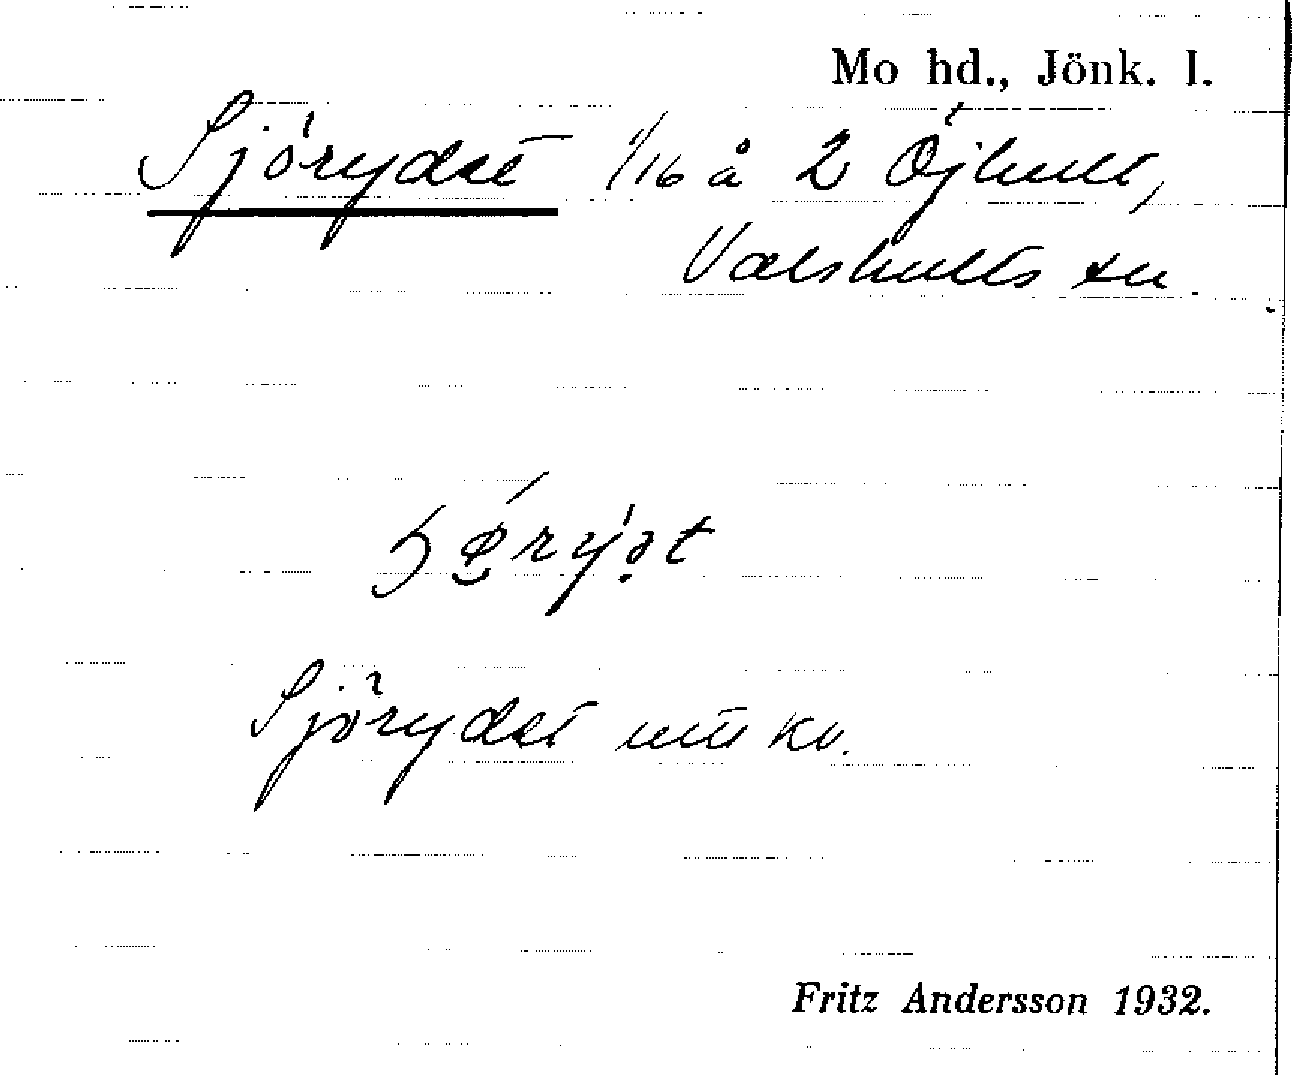 Mo hd., Jönk. l.
Sjörydet 1/16 å 2 Öjhult,
Valshults sn.
Sjörydet utt kv.
Fritz Andersson 1932.